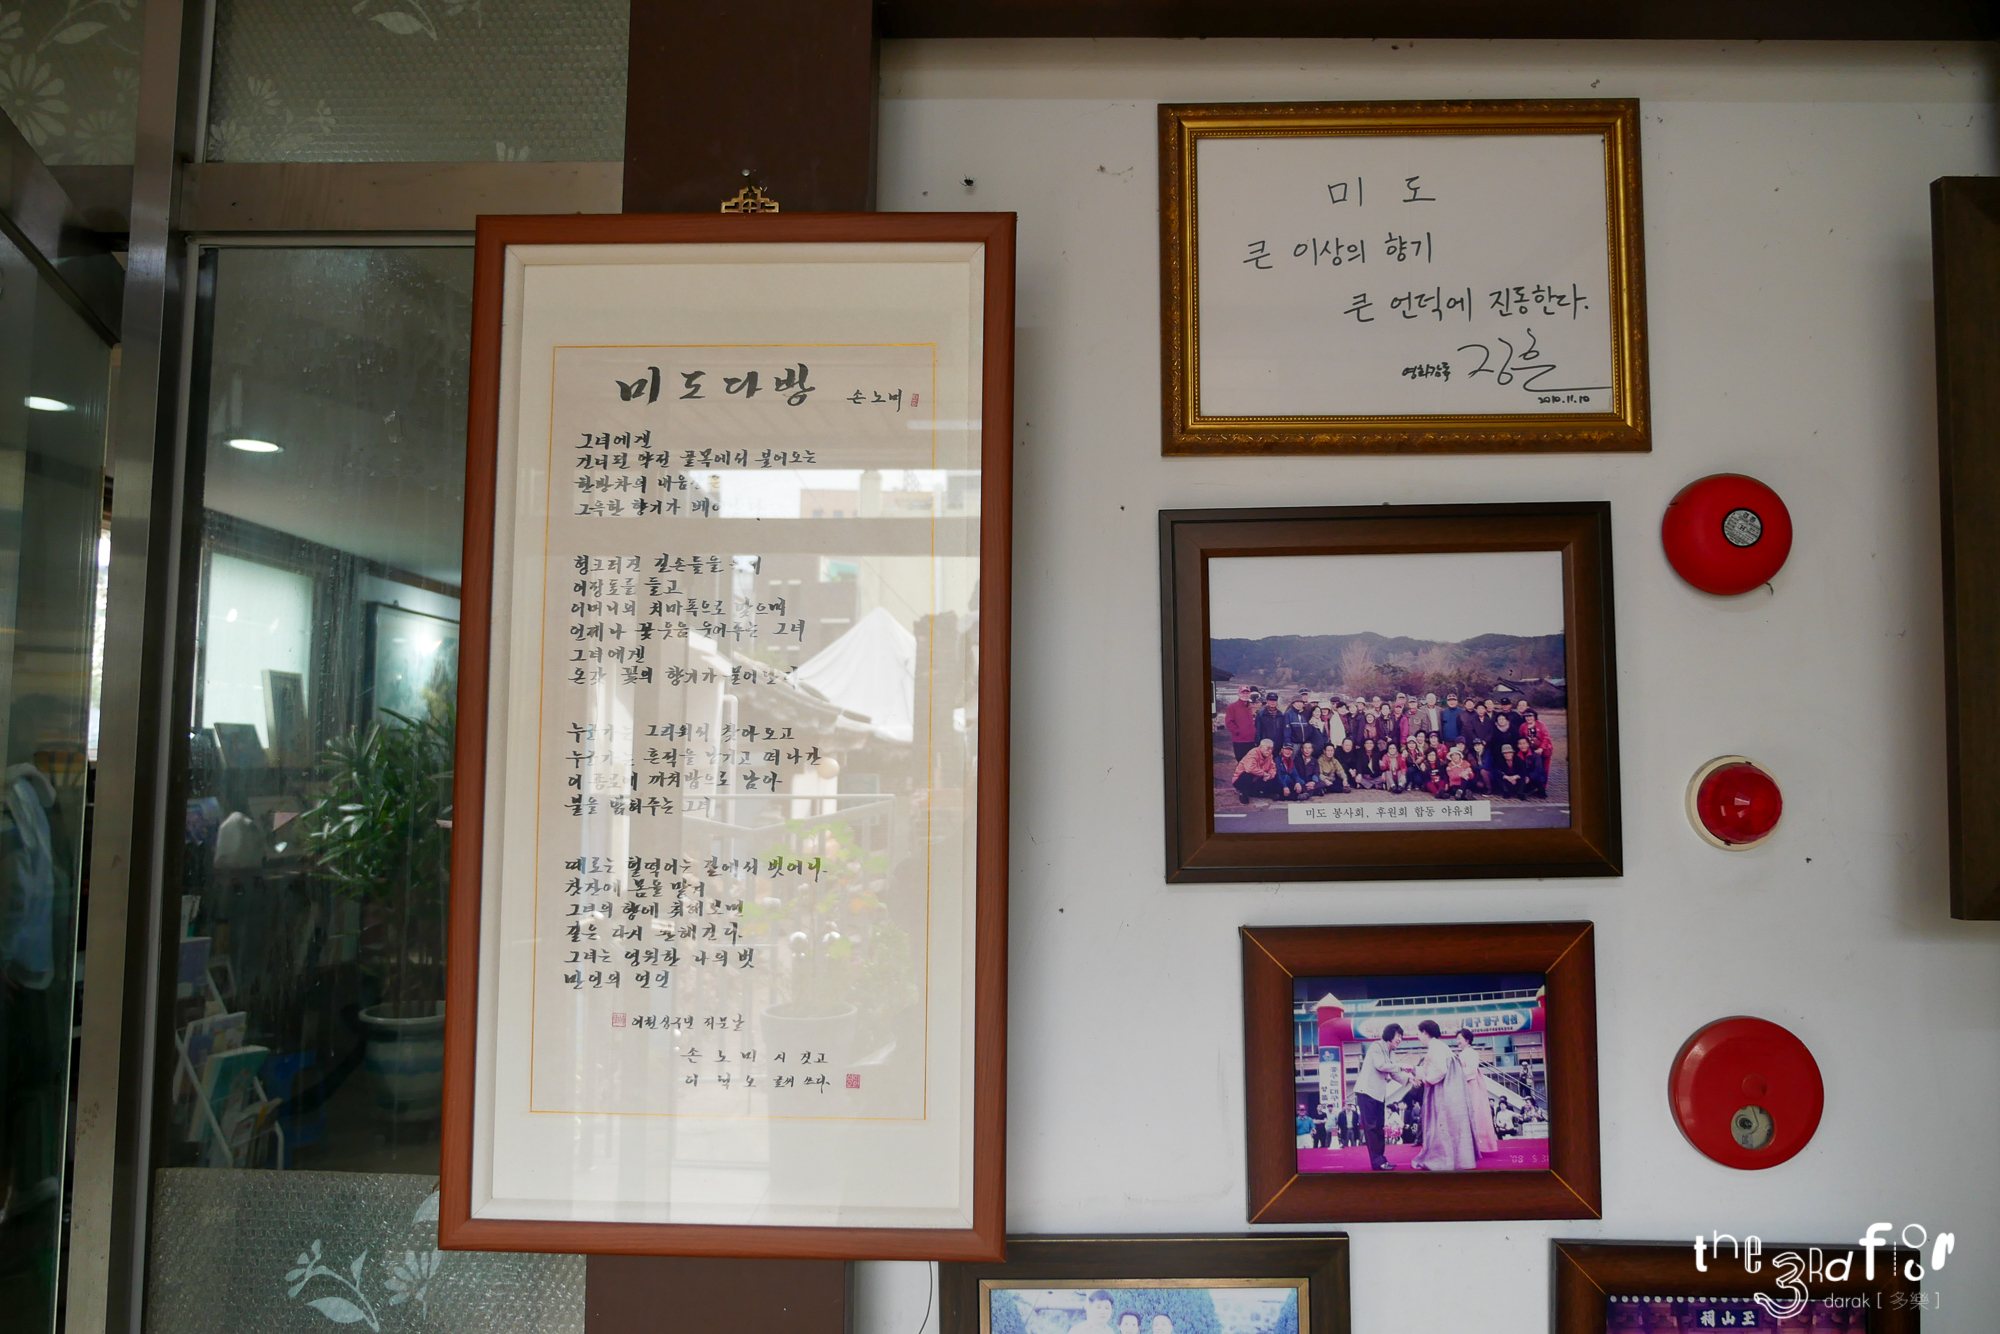 미도다방 손노미
그녀에겐
건너편 약전 골목에서 불어오는
한방차의 내음
그윽한 향기가 배
헝크러진 길손들을
어깡표를 들고
어머니의 치마폭으로 닦으며
언제나 꽃웃음 웃어주는 그녀
그녀에겐
온갖 꽃의 향기가 불어
누군가는 그리워서 찾아오고
누군가는 흔적을 남기고 떠나간
까치밥으로 남아
불을 밝혀주는 그녀
때로는 길에서 벗어나
찻잔에 몸을 맡겨
그녀의 향에 취해보면
길은 다시 환해진다.
그녀는 영원한 나의 벗
만인의 연인
이천십구년 지문날
손노미 시 짓고
이덕오 글씨 쓰다.
미도
큰 이상의 향기
큰 언덕에 진동한다.
영화감독
2010.11.10
미도 봉사회, 후원회 합동 야유회
the 3rd floor
darak [多樂]
玉山祠